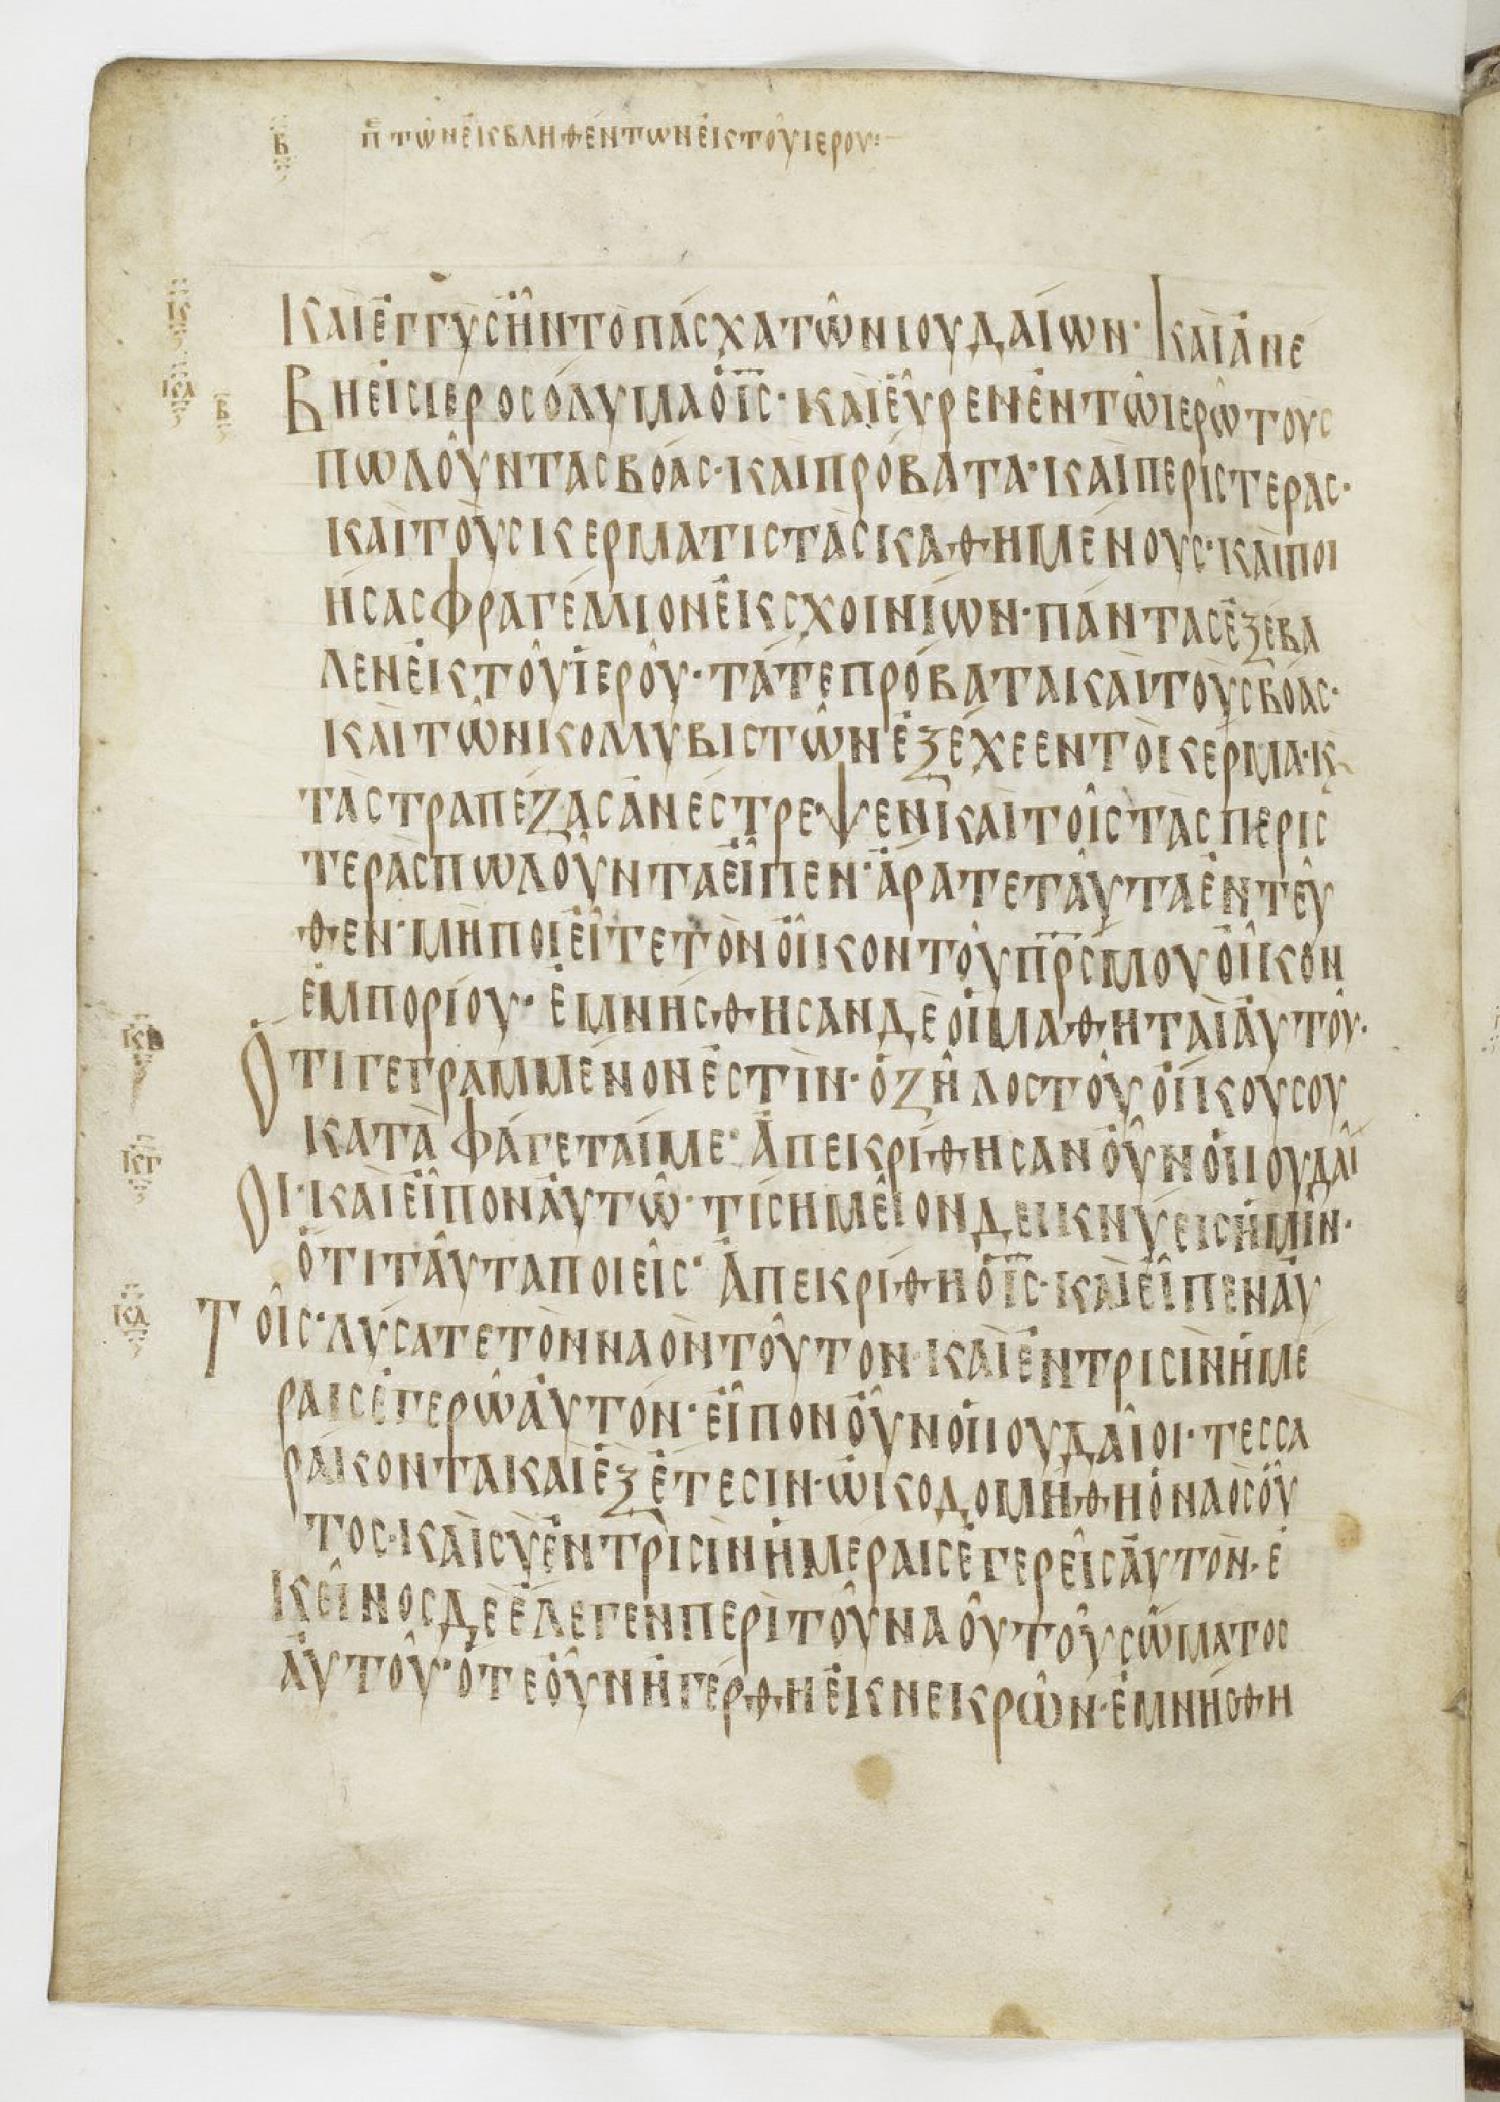 Β Π͞ τῶν ἐκβληθέντων ἐκ τοῦ ἱεροῦ:
Κ Καὶ ἐγγὺς ἦν τὸ πάσχα τῶν ἰουδαίων· Καὶ ἀνέ
ΚΑ Β βη εἰς ἱεροσόλυμα ὁ ι͞ς· καὶ εὗρεν ἐν τῶ ἱερῶ τοὺς
πωλοῦντας βόας· καὶ πρόβατα· καὶ περιστεράς·
καὶ τοὺς κερματιστὰς καθημένους· καὶ ποι
ήσας φραγέλλιον ἐκ σχοινίων· πάντας ἐξέβα
λεν ἐκ τοῦ ἱεροῦ· τά τε πρόβατα καὶ τοὺς βόας·
καὶ τῶν κολλυβιστῶν ἐξέχεεν τὸ κέρμα· κ̀
τὰς τραπέζας ἀνέστρεψεν καὶ τοῖς τὰς περισ
τερὰς πωλοῦντα εἶπεν· ἄρατε ταῦτα ἐντεῦ
θεν· μὴ ποιεῖτε τὸν οἶκον τοῦ π͞ρς μου οἶκον
ἐμπορίου· ἐμνήσθησαν δὲ οἱ μαθηταὶ αὐτοῦ·
ΚΒ Ὅτι γεγραμμένον ἐστὶν· ὁ ζῆλος τοῦ οἴκου σου
καταφάγεταί με· Ἀπεκρίθησαν οὖν οἱ ἰουδαῖ
ΚΓ Οι· καὶ εἶπον αὐτῶ· τί σημεῖον δεικνύεις ἡμῖν·
ὅτι ταῦτα ποιεῖς· Ἀπεκρίθη ὁ ι͞ς· καὶ εἶπεν αὐ
ΚΔ Τοῖς· λύσατε τὸν ναὸν τοῦτον· καὶ ἐν τρισὶν ἡμέ
ραις ἐγερῶ αὐτόν· εἶπον οὖν οἱ ἰουδαῖοι· τεσσα
ράκοντα καὶ ἓξ ἔτεσιν· ὠκοδομήθη ὁ ναὸς οὗ
τος· καὶ σὺ ἐν τρισὶν ἡμέραις ἐγερεῖς αὐτὸν· ἐ
Κεῖνος δὲ ἔλεγεν περὶ τοῦ ναοῦ τοῦ σώματος
αὐτοῦ· ὅτε οὖν ἠγέρθη ἐκ νεκρῶν· ἐμνήσθη